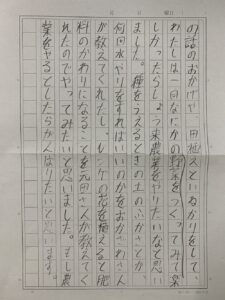 の話のおかげや、田植えといねかりをして、
わたしは一回なにかの野菜をつくってみてほ
しかったらしょう来農業をやりたいなと思い
ました。種をうえるときの土のふかさとか
何回水やりをすればいいのかをおかあさん
が教えてくれたし、レンゲの花を植えると肥
料のかわりになることを元田さんが教えてく
れたのでやってみたいと思いました。もし農
業をやるとしたらがんばりたいと思います。